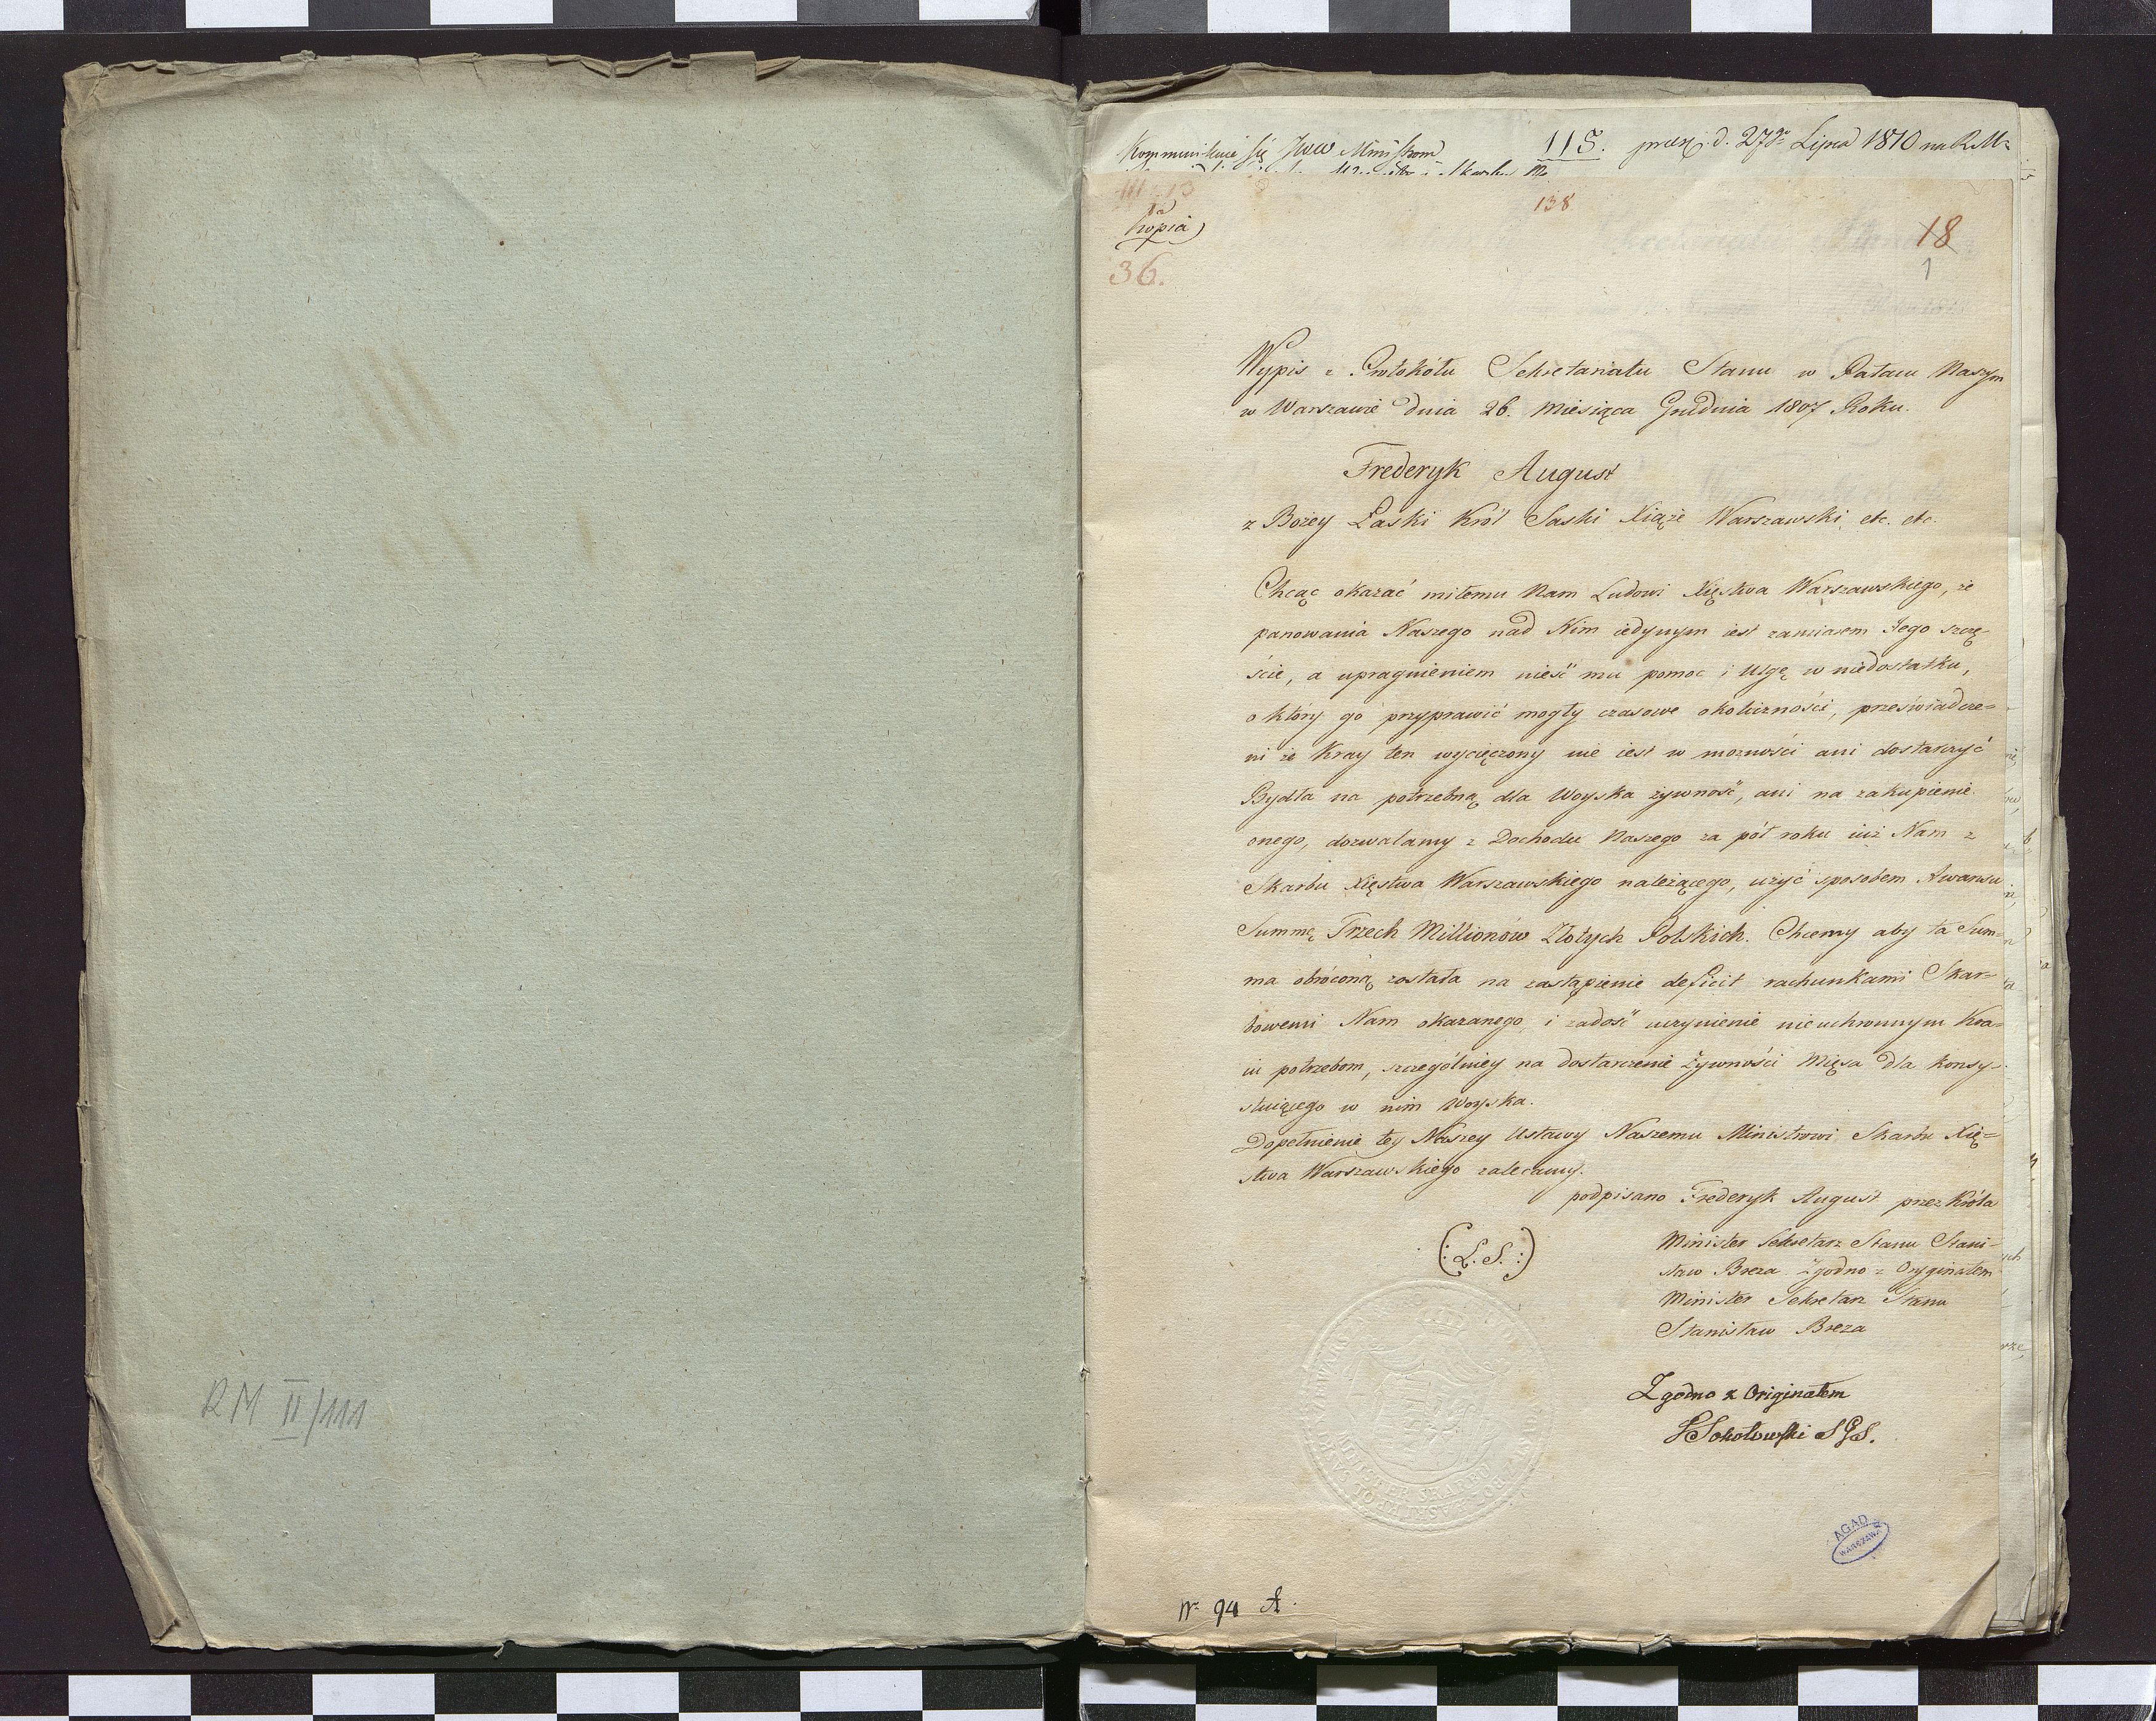 Kommunikuie się JWW Ministrom 115. prez. d. 27go Lipca 1810 na RM.
138
Kopia
18
36.
1
Wypis z Protokółu Sekretariatu Stanu w Pałacu Naszym
w Warszawie dnia 26. Miesiąca Grudnia 1807 Roku.
Frederyk August
z Bożey Łaski Król Saski Xiąże Warszawski, etc. etc.
Chcąc okazać miłemu Nam Ludowi Xięstwa Warszawskiego, że
panowania Naszego nad Nim iedynym iest zamiarem Jego szczę-
ście, a upragnieniem nieść mu pomoc i Ulgę w niedostatku,
o który go przyprawić mogły czasowe okoliczności, przeświadcze=
ni że Kray ten wycięczony nie iest w możności ani dostarczyć
Bydła na potrzebną dla Woyska żywność, ani na zakupienie
onego, dozwalamy z Dochodu Naszego za pół roku iuż Nam z
Skarbu Xięstwa Warszawskiego należącego, użyć sposobem Awansu
Summę Trzech Millionów Złotych Polskich. Chcemy aby ta Sum=
ma obróconą została na zastąpienie deficit rachunkami Skar=
bowemi Nam okazanego, i zadość uczynienie nieuchronnym Kra=
iu potrzebom, szczególniey na dostarczenie Żywności Mięsa dla konsy-
stuiącego w nim Woyska.
Dopełnienie tey Naszey Ustawy Naszemu Ministrowi Skarbu Xię=
stwa Warszawskiego zalecamy.
podpisano Frederyk August przez Króla
(: L. S. :)
Minister Sekretarz Stanu Stani-
sław Breza Zgodno z Oryginałem
Minister Sekretarz Stanu
Stanisław Breza
Zgodno z Originałem
Sokołowski SGS.
MINISTER SKARBU
AGAD
WARSZAWA
RM II/111
Nr 94 A.